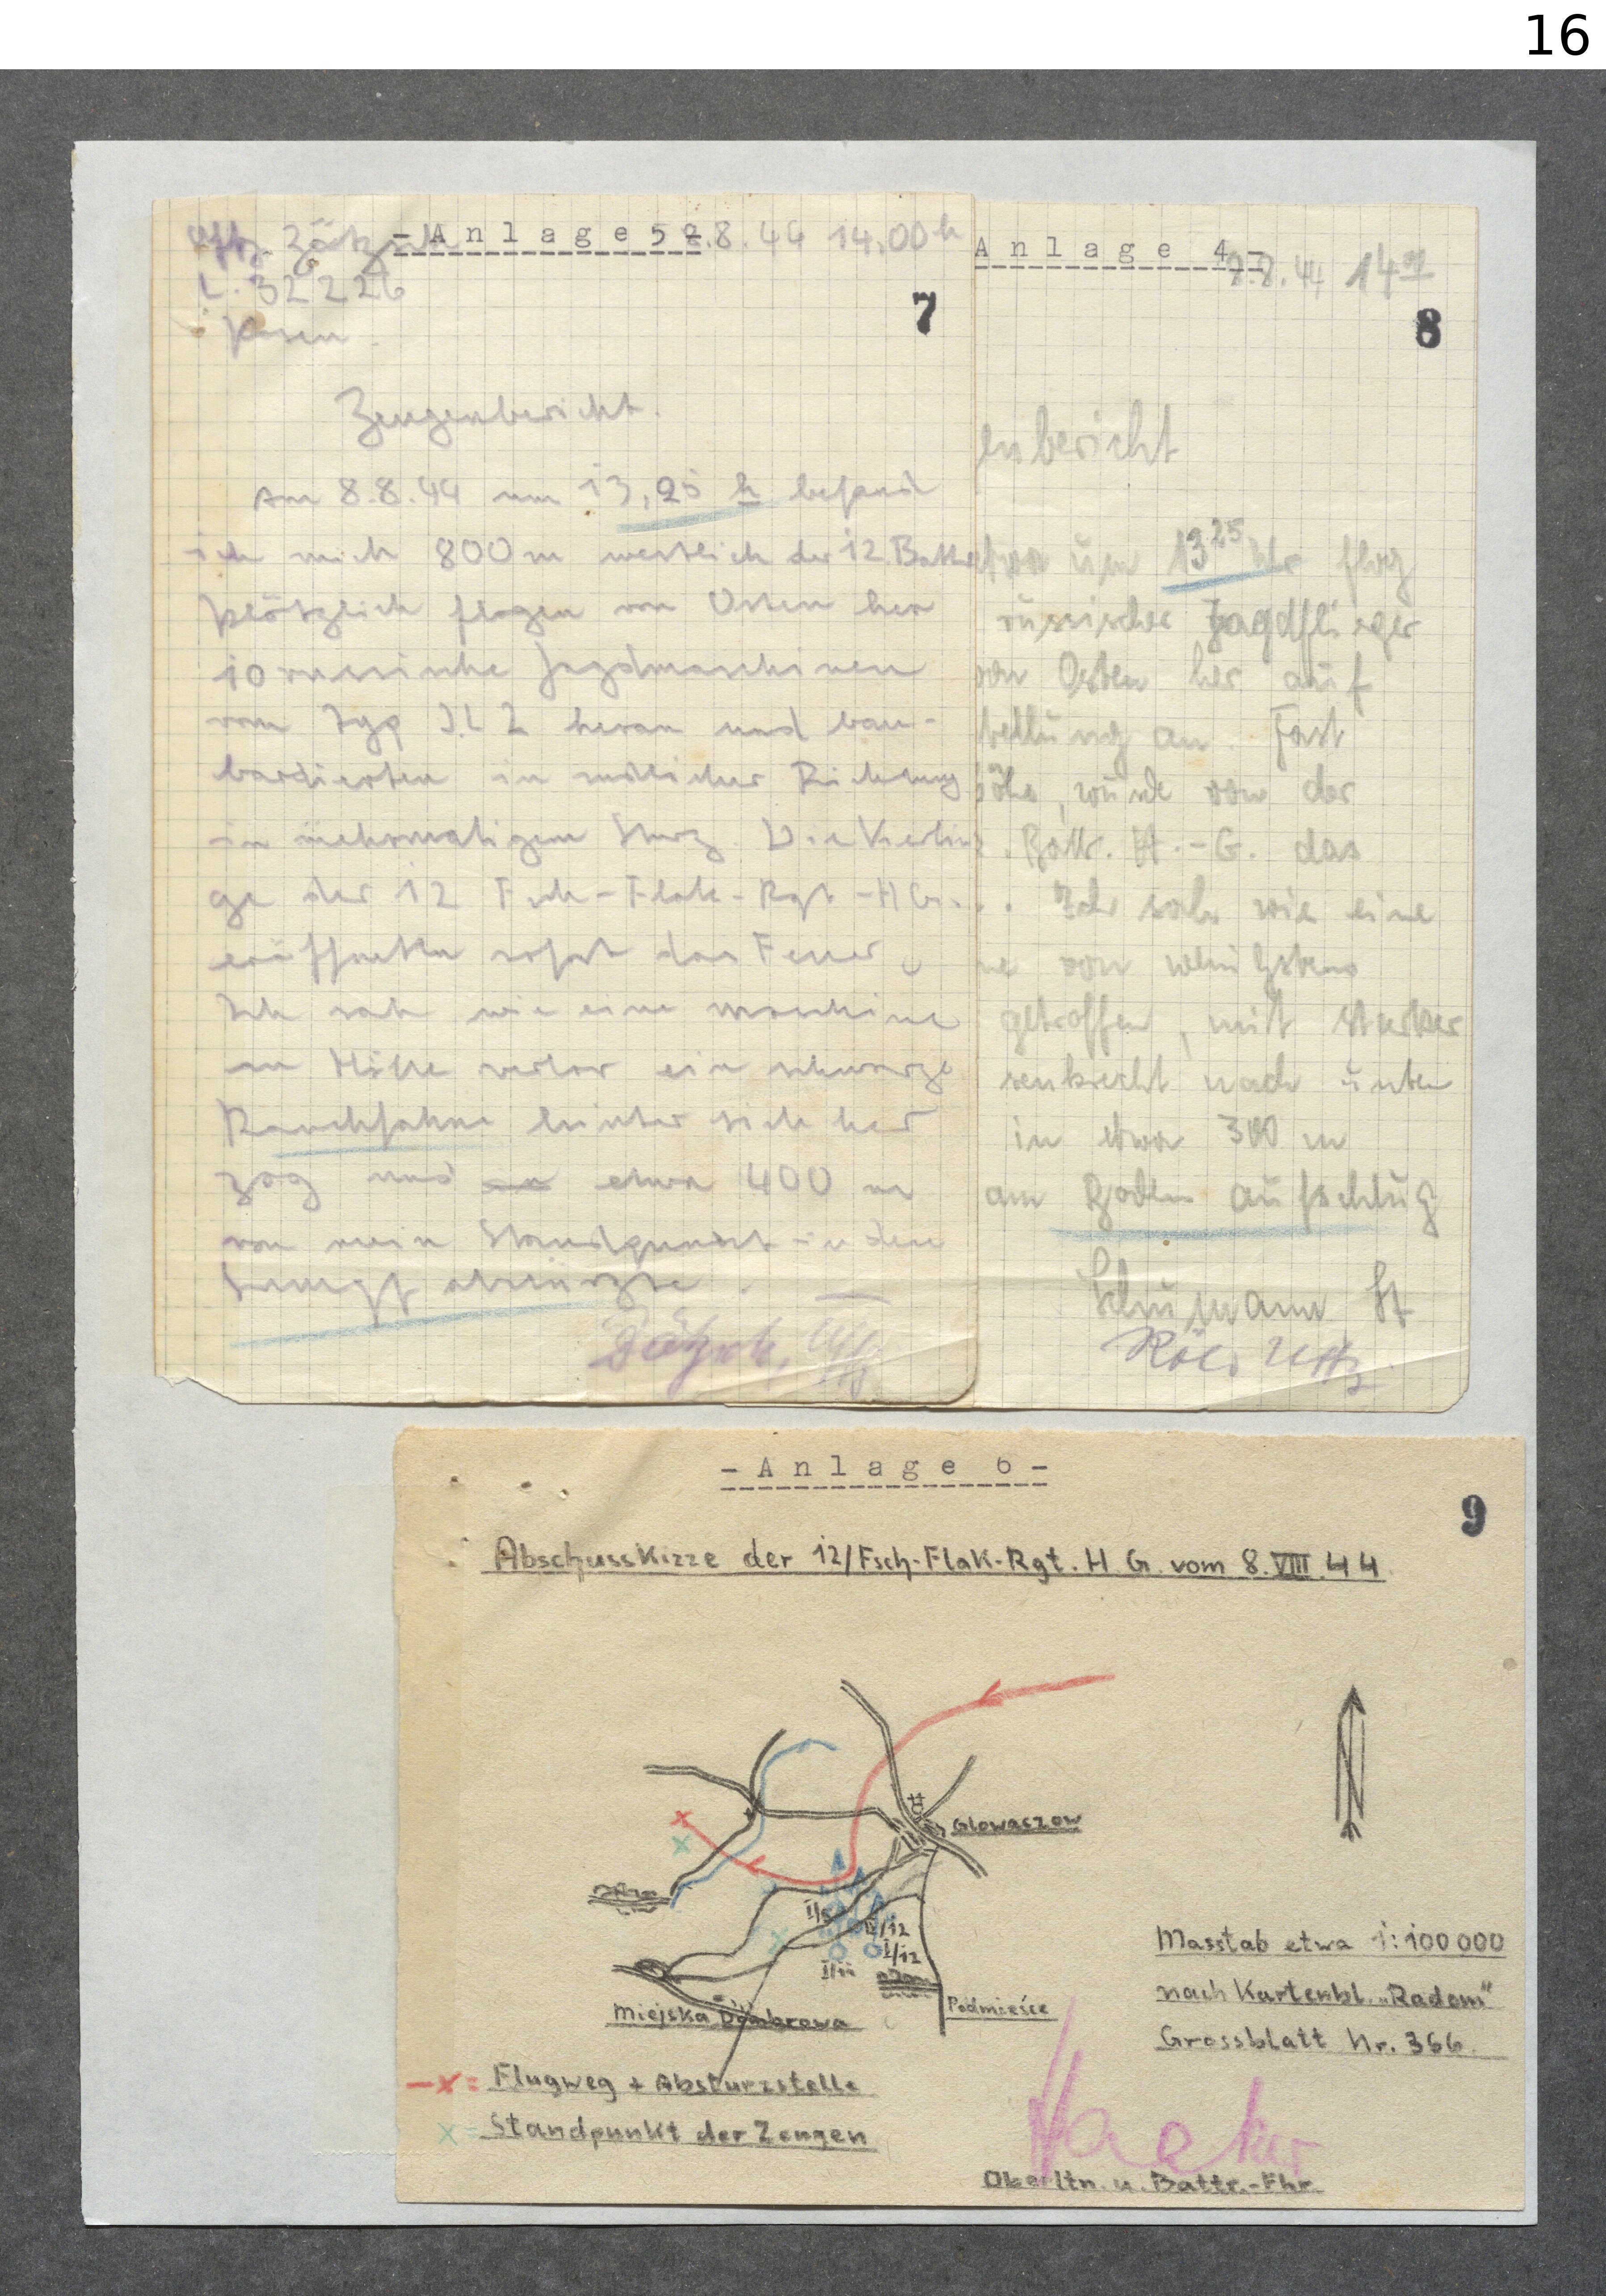 16
- A n l a g e 5 -
8.8.44 14.00 h
L. 32 226
Posen.
7
Zeugenbericht.
Am 8.8.44 um 13,25 h befand
ich mich 800 m westlich der 12. Batterie
plötzlich flogen von Osten her
10 russische Jagdmaschinen
vom Typ I.L 2 heran und bom-
bardierten in südlicher Richtung
in mehrmaligem Sturz. Die Vierlin-
ge der 12 Fsch-Flak-Rgt-HG.
eröffneten sofort das Feuer.
Ich sah wie eine Maschine
an Höhe verlor ein schwarze
Rauchfahne hinter sich her
zog und etwa 400 m
von mein Standpunkt in den
Sumpf abstürzte.
Uffz
A n l a g e 4 -
8.8.44 14
8
enbericht
um 13 25 Uhr flog
russischer Jagdflieger
von Osten her auf
stellung an. Fast
höhe, wurde von der
. Battr. H.-G. das
. Ich sah wie eine
ne von wenigstens
getroffen, mit starker
senkrecht nach unten
in etwa 300 m
am Boden aufschlug
Schumann
Uffz
- A n l a g e 6 -
9
Abschusskizze der 12/Fsch-Flak-Rgt. H. G. vom 8. VIII. 44.
Glowaszow
I/12
Podmiesce
Miejska Dombrowa
Masstab etwa 1:100 000
nach Kartenbl. „Radom"
Grossblatt Nr. 366.
-x = Flugweg + Absturzstelle
x = Standpunkt der Zeugen
Oberltn. u. Battr.-Fhr.